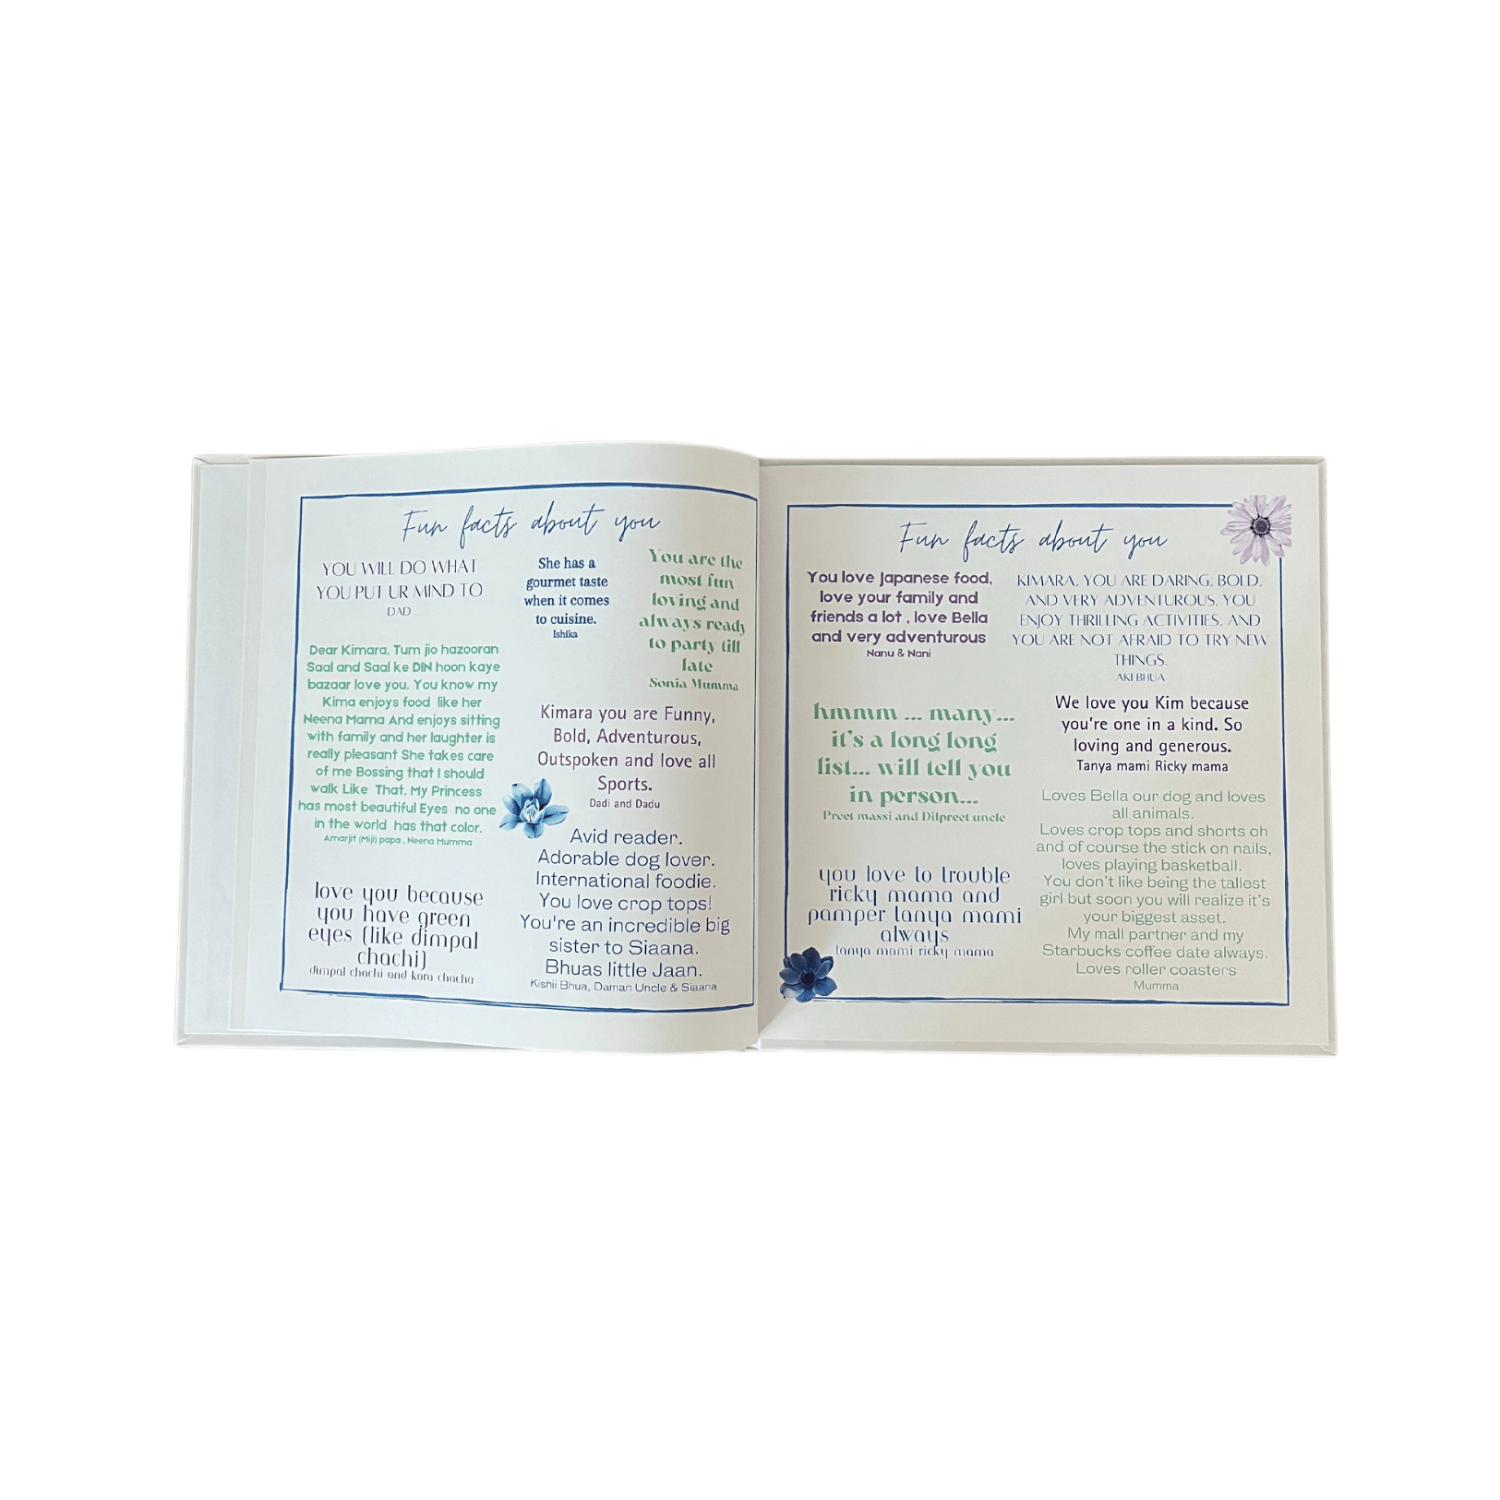 Fun facts about you
YOU WILL DO WHAT
YOU PUT UR MIND TO
DAD
She has a
gourmet taste
when it comes
to cuisine.
Ishika
You are the
most fun
loving and
always ready
to party till
late
Sonia Mumma
Dear Kimara. Tum jio hazooran
Saal and Saal ke DIN hoon kaye
bazaar love you. You know my
Kima enjoys food like her
Neena Mama And enjoys sitting
with family and her laughter is
really pleasant She takes care
of me Bossing that I should
walk Like That. My Princess
has most beautiful Eyes no one
in the world has that color.
Amarjit (Miji) papa , Neena Mumma
Kimara you are Funny,
Bold, Adventurous,
Outspoken and love all
Sports.
Dadi and Dadu
love you because
you have green
eyes (like dimpal
chachi)
dimpal chachi and kara chacha
Avid reader.
Adorable dog lover.
International foodie.
You love crop tops!
You're an incredible big
sister to Siaana.
Bhuas little Jaan.
Kishii Bhua, Daman Uncle & Siaana
Fun facts about you
You love Japanese food,
love your family and
friends a lot , love Bella
and very adventurous
Nanu & Nani
KIMARA, YOU ARE DARING, BOLD,
AND VERY ADVENTUROUS. YOU
ENJOY THRILLING ACTIVITIES, AND
YOU ARE NOT AFRAID TO TRY NEW
THINGS.
AKI BHUA
hmmm ... many...
it's a long long
list... will tell you
in person...
Preet massi and Dilpreet uncle
We love you Kim because
you're one in a kind. So
loving and generous.
Tanya mami Ricky mama
you love to trouble
ricky mama and
pamper tanya mami
always
tanya mami ricky mama
Loves Bella our dog and loves
all animals.
Loves crop tops and shorts oh
and of course the stick on nails,
loves playing basketball.
You don't like being the tallest
girl but soon you will realize it's
your biggest asset.
My mall partner and my
Starbucks coffee date always.
Loves roller coasters
Mumma